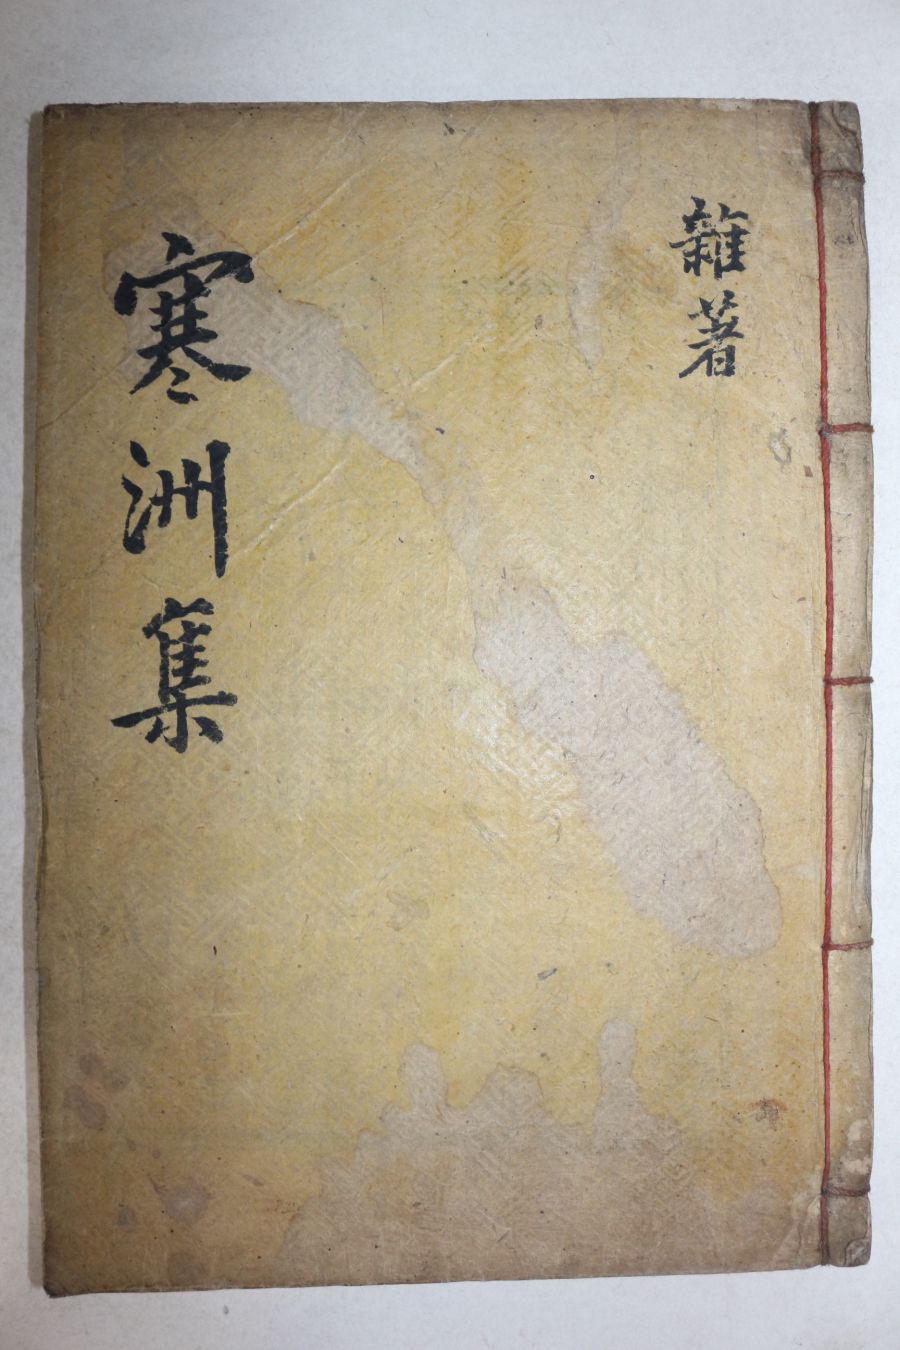 雜著
寒洲集